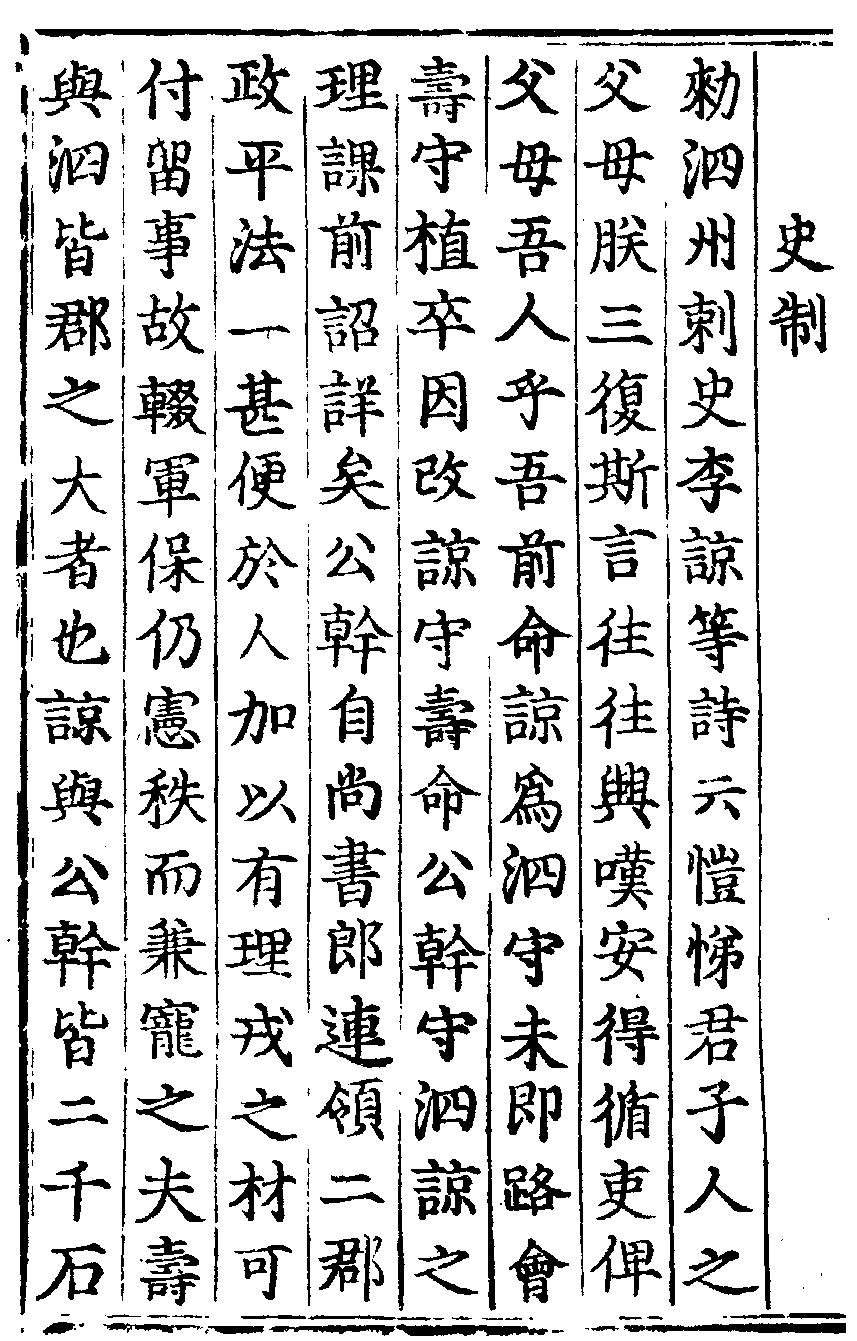 史制
勑泗州刺史李諒等詩云愷悌君子人之
父母朕三復斯言往往興嘆安得循吏俾
父母吾人乎吾前命諒爲泗守未即路會
壽守植卒因改諒守壽命公幹守泗諒之
理課前詔詳矣公幹自尚書郎連領二郡
政平法一甚便於人加以有理戎之材可
付留事故輟軍保仍憲秩而兼寵之夫壽
與泗皆郡之大者也諒與公幹皆二千石